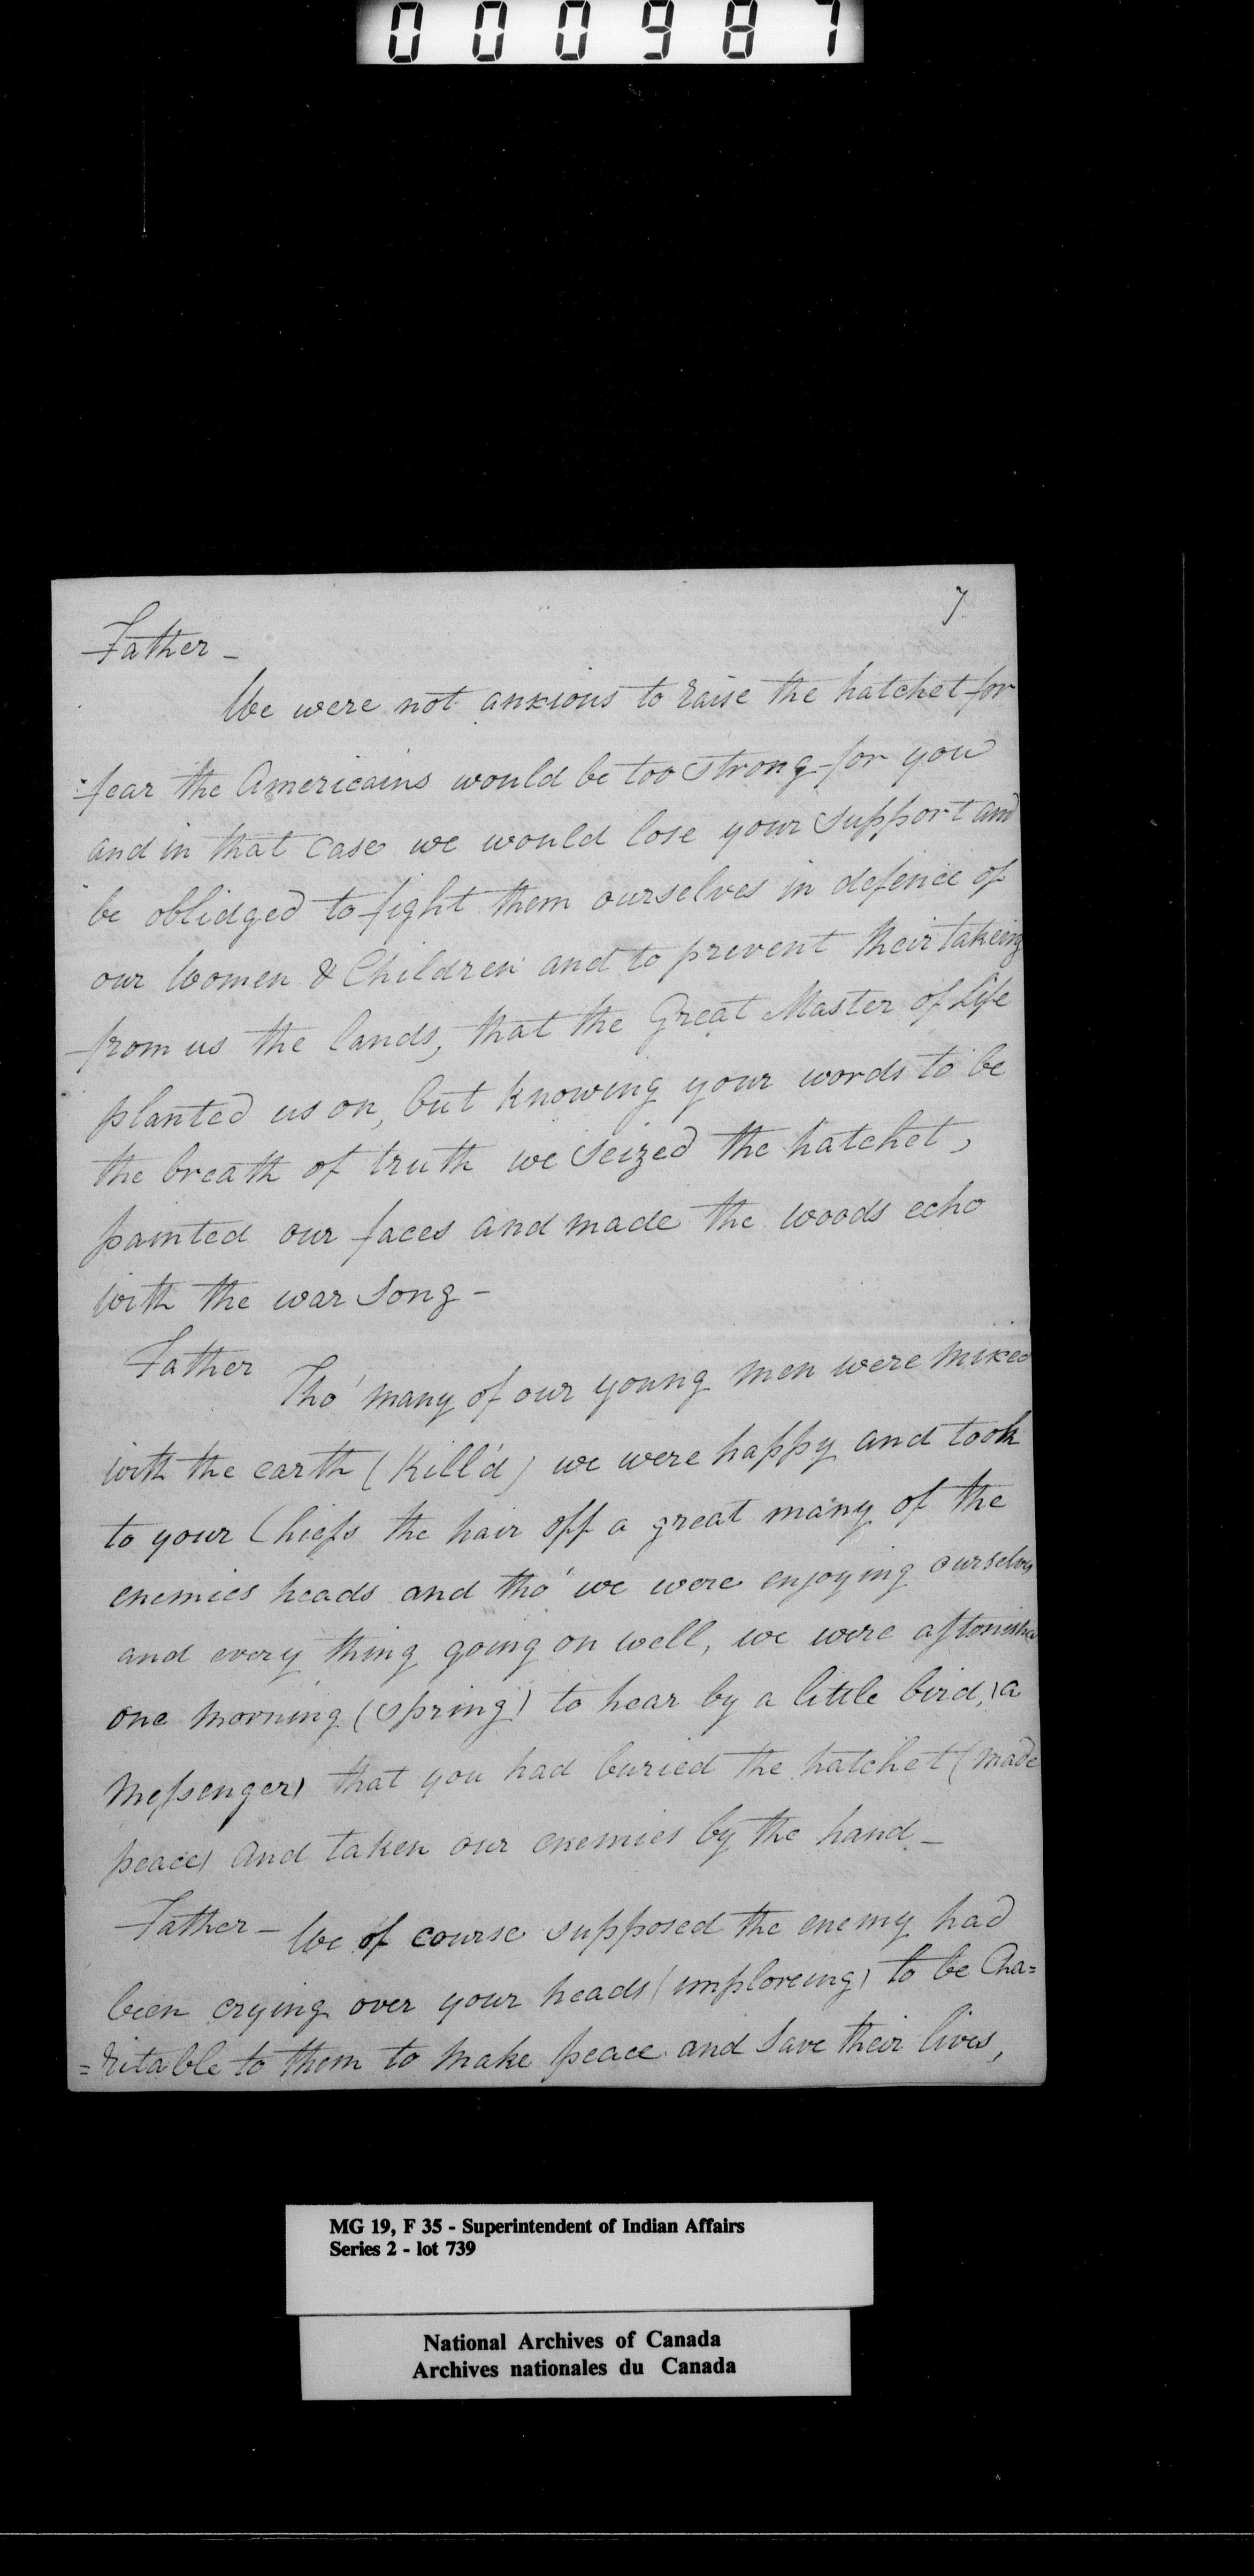 000987
7
Father –
We were not anxious to raise the hatchet for
fear the Americains would be too strong for you
and in that case we would lose your support and
be oblidged to fight them ourselves in defence of
our Women & Children and to prevent their takeing
from us the lands, that the Great Master of Life
planted us on, but knowing your words to be
the breath of truth we seized the hatchet,
painted our faces and made the woods echo
with the war song –
Father
Tho' many of our young men were mixed
with the earth (Kill'd) we were happy and took
to your Chiefs the hair off a great many of the
enemies heads and tho' we were enjoying ourselves
and every thing going on well, we were astonished
one morning (Spring) to hear by a little bird, (a
Messenger) that you had buried the hatchet (made
peace) and taken our enemies by the hand –
Father – We of course supposed the enemy had
been crying over your heads (imploreing) to be Cha=
=ritable to them to make peace and save their lives,
MG 19, F 35 - Superintendent of Indian Affairs
Series 2 - lot 739
National Archives of Canada
Archives nationales du Canada